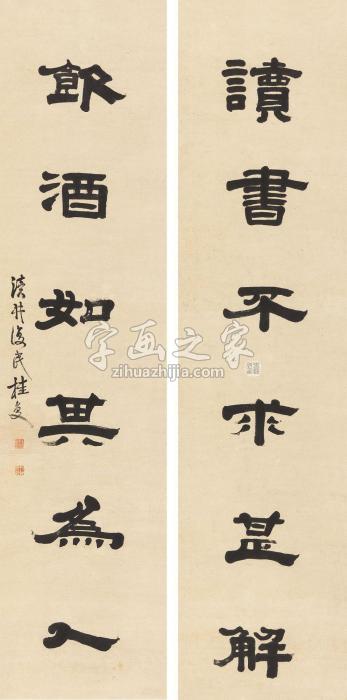 讀書不求甚解
飲酒如其為人
瀆井復民桂馥
字画之家
zihuazhijia.com